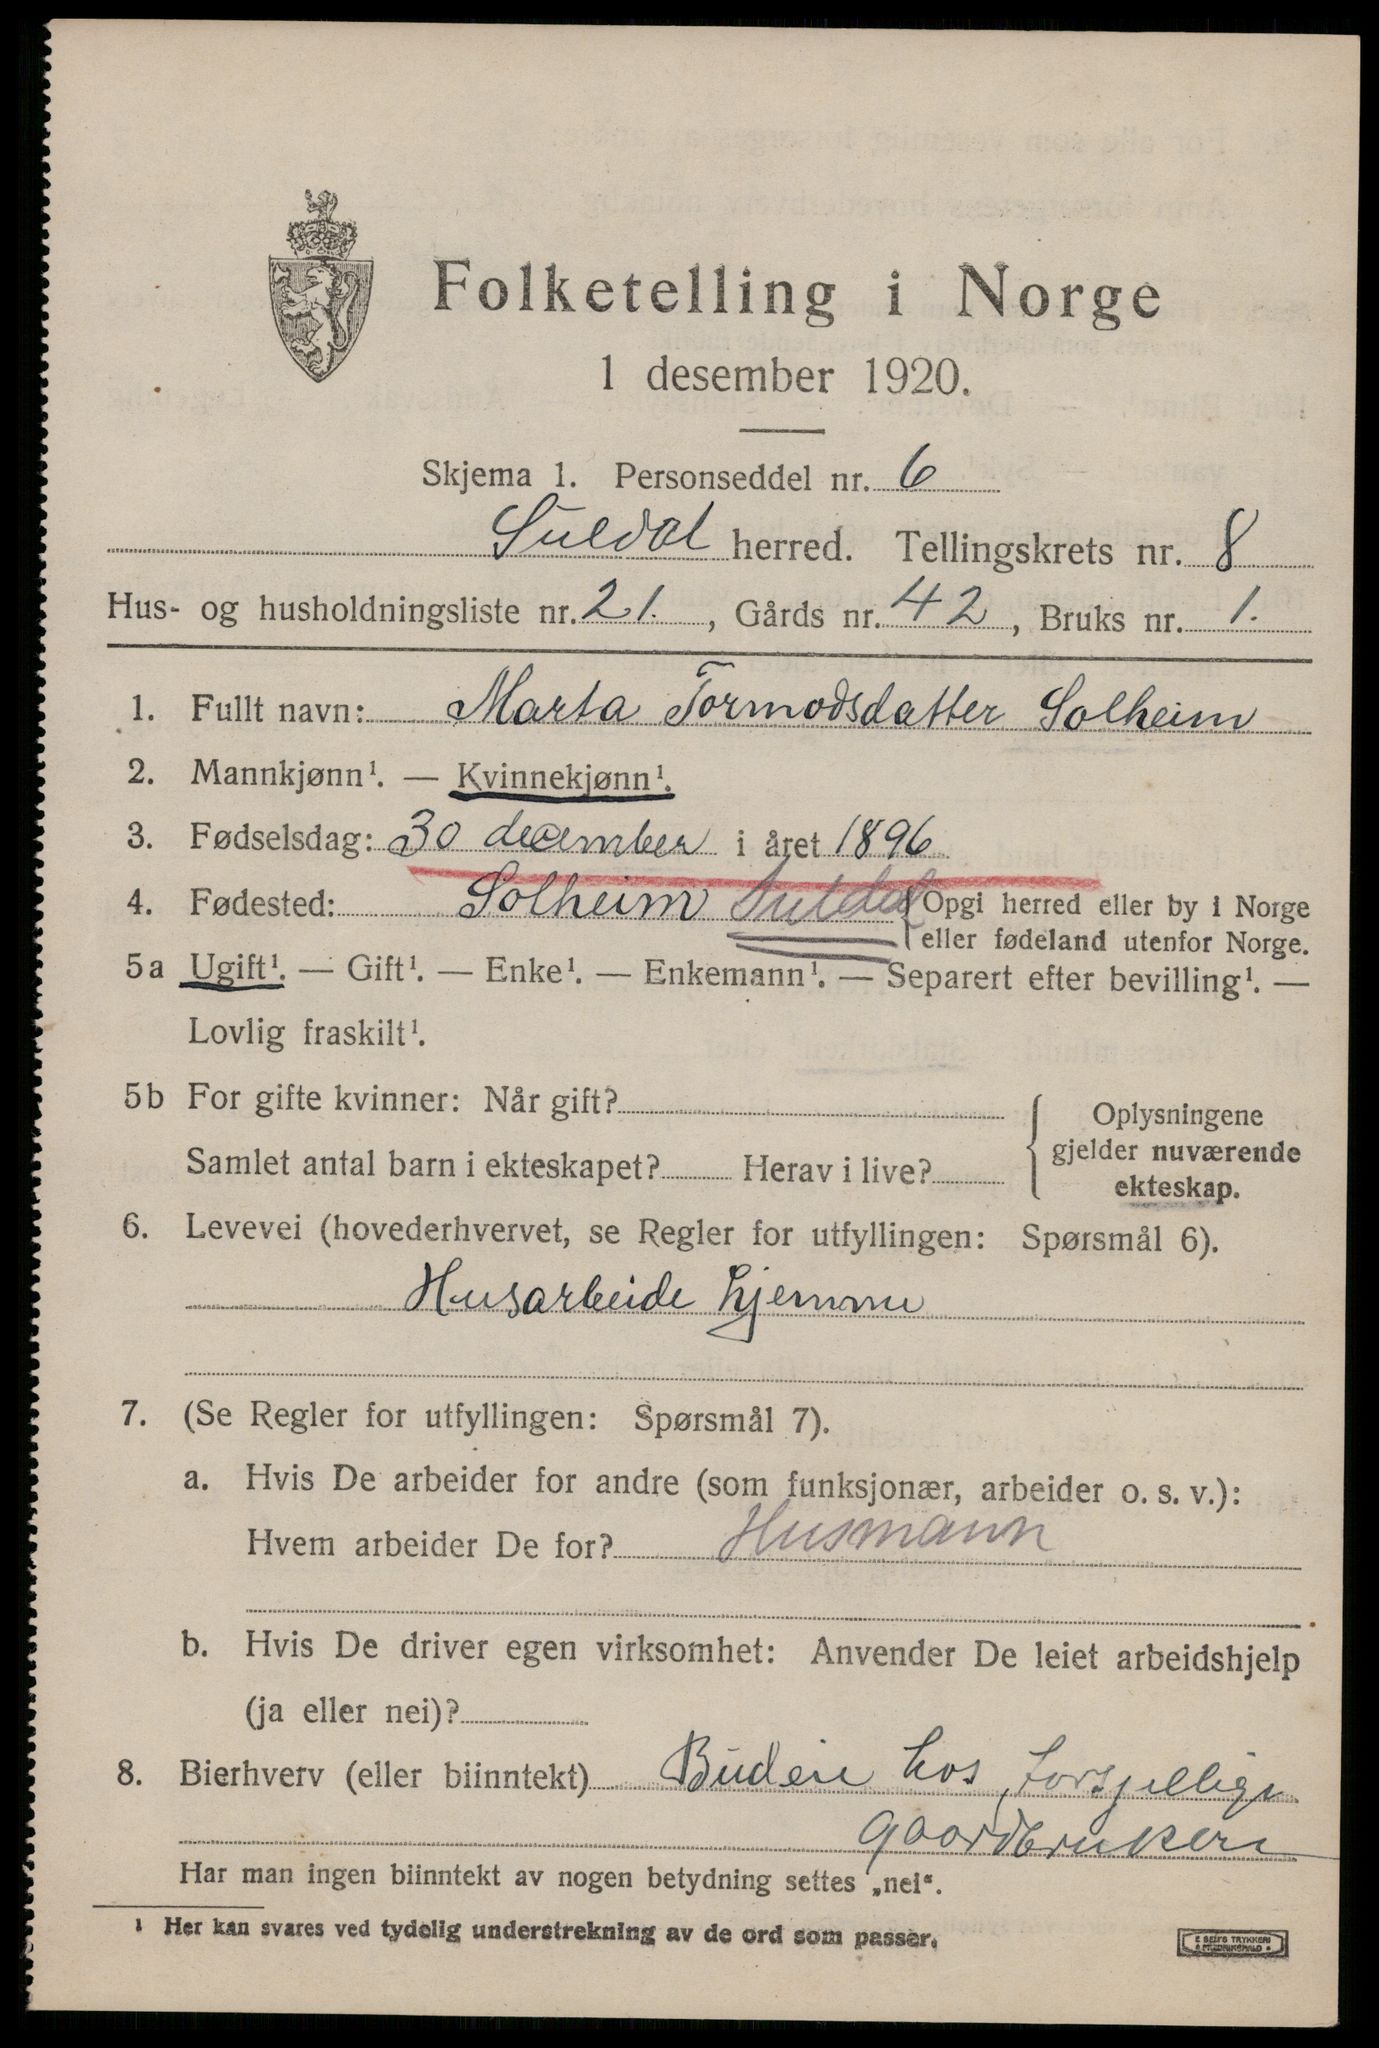 Folketelling i Norge
1 desember 1920.
Skjema 1. Personseddel nr. 6
Suldal herred. Tellingskrets nr. 8
Hus- og husholdningsliste nr. 21., Gårds nr. 42, Bruks nr. 1.
1. Fullt navn: Marta Tormodsdatter Solheim
2. Mannkjønn¹. — Kvinnekjønn¹.
3. Fødselsdag: 30 december i året 1896
4. Fødested: Solheim Suldal { Opgi herred eller by i Norge
eller fødeland utenfor Norge.
5a Ugift¹. — Gift¹. — Enke¹. — Enkemann¹. — Separert efter bevilling¹. —
Lovlig fraskilt¹.
5b For gifte kvinner: Når gift?
Samlet antal barn i ekteskapet? Herav i live?
{ Oplysningene
gjelder nuværende
ekteskap.
6. Levevei (hovederhvervet, se Regler for utfyllingen: Spørsmål 6).
Husarbeide hjemme
7. (Se Regler for utfyllingen: Spørsmål 7).
a. Hvis De arbeider for andre (som funksjonær, arbeider o. s. v.):
Hvem arbeider De for? Husmann
b. Hvis De driver egen virksomhet: Anvender De leiet arbeidshjelp
(ja eller nei)?
8. Bierhverv (eller biinntekt) Budeie hos forsjellige
gaardbrukere
Har man ingen biinntekt av nogen betydning settes „nei“.
¹ Her kan svares ved tydelig understrekning av de ord som passer.